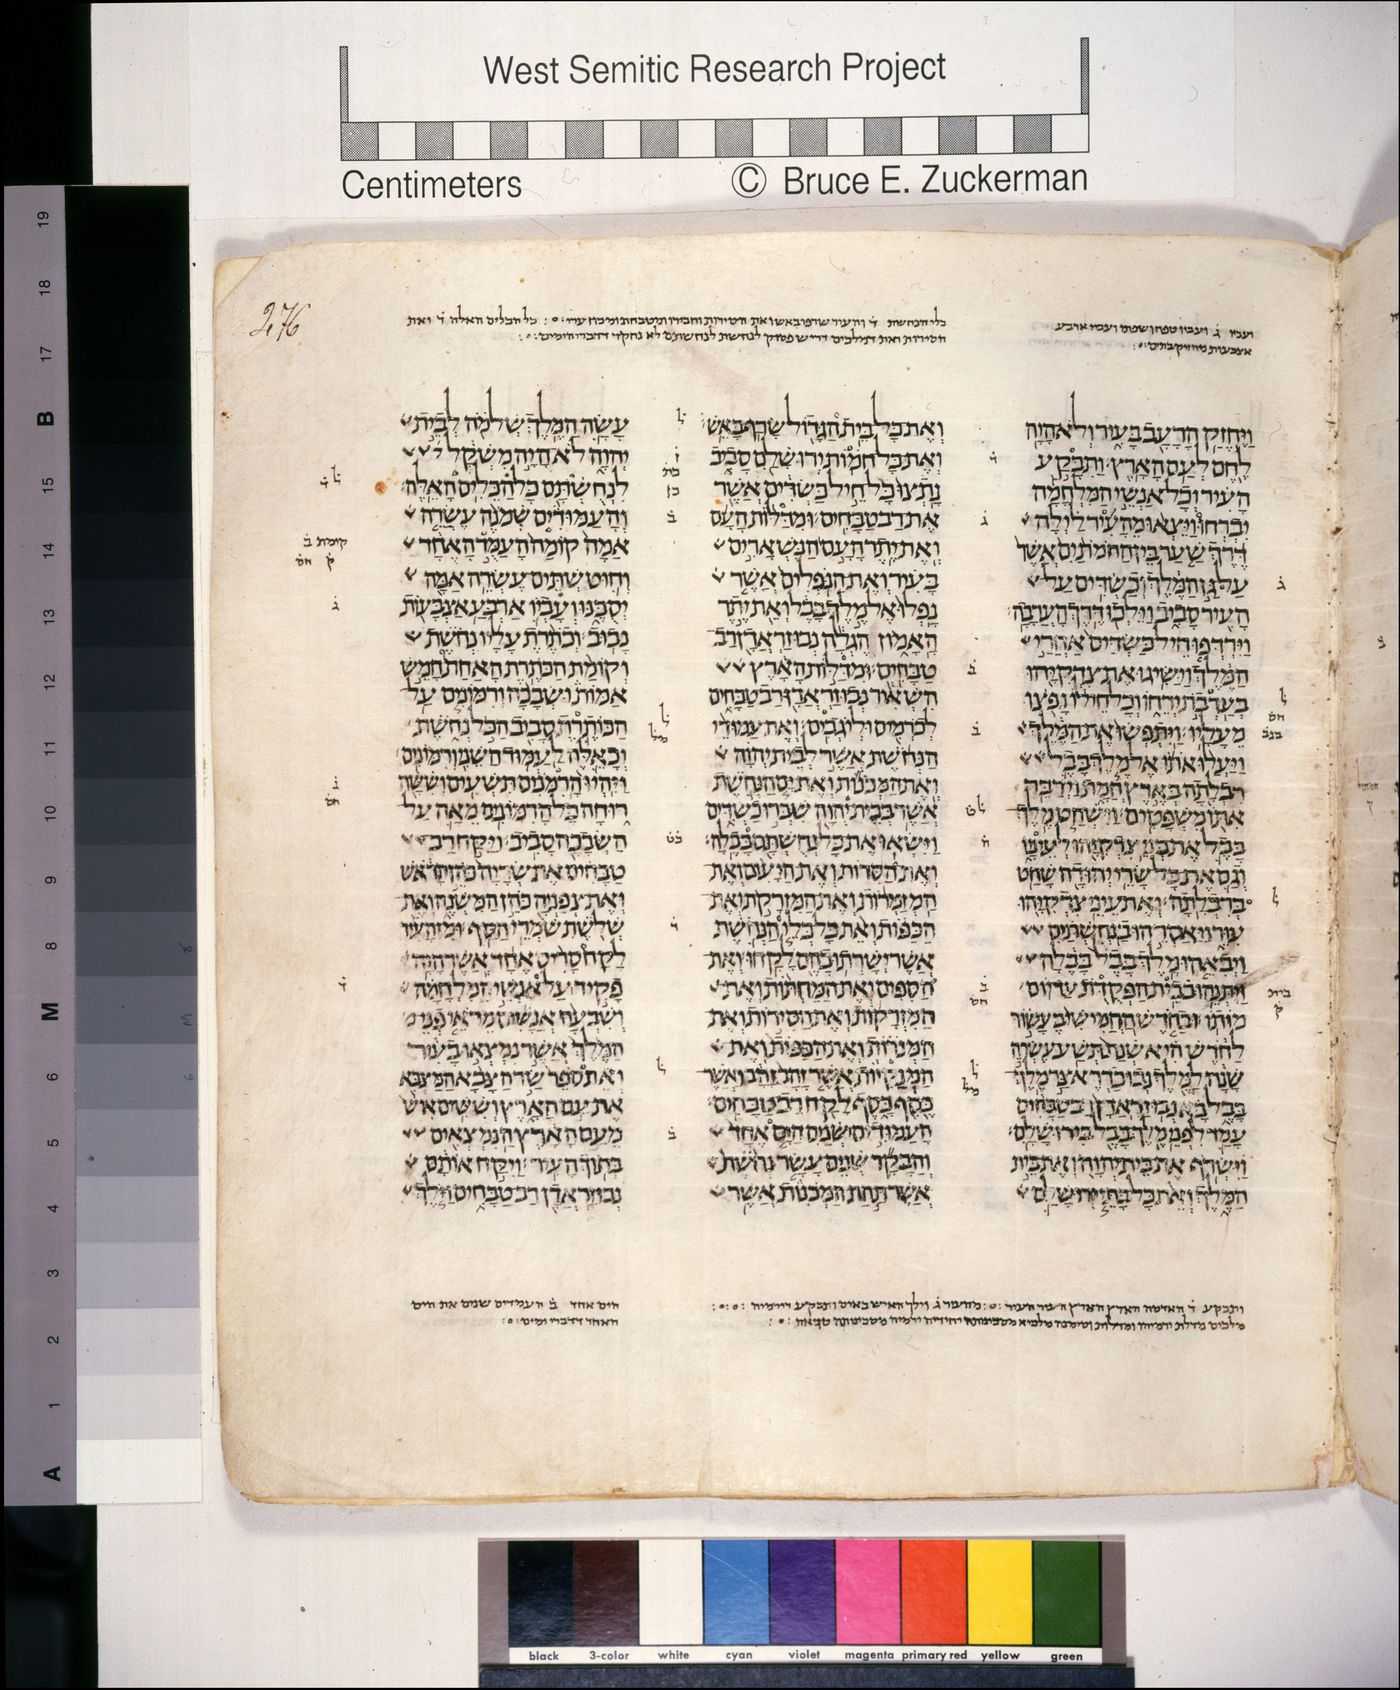 West Semitic Research Project
Centimeters
© Bruce E. Zuckerman
276
ויחזק הרעב בעיר ולא היה
לחם לעם הארץ ותבקע
העיר וכל אנשי המלחמה
יברחו ויצאו מהעיר לילה
דרך שער בין החמתים אשר
על גן המלך וכשדים על
העיר סביב וילכו דרך הערבה
וירדפו חיל כשדים אחרי
המלך וישיגו את צדקיהו
בערבת ירחו וכל חילו נפצו
מעליו ויתפשו את המלך
ויעלו אתו אל מלך בבל
רבלתה בארץ חמת וידבר
אתו משפטים וישחט מלך
בבל את בני צדקיהו לעיניו
וגם את כל שרי יהודה שחט
ברבלתה ואת עיני צדקיהו
עור ויאסרהו בנחשתים
ויבאהו מלך בבל בבלה
ויתנהו בבית הפקדת עד יום
מותו ובחדש החמישי בעשור
לחדש היא שנת תשע עשרה
שנה למלך נבוכדראצר מלך
בבל בא נבוזראדן רב טבחים
עמד לפני מלך בבל בירושלם
וישרף את בית יהוה ואת בית
המלך ואת כל בתי ירושלם
ואת כל בית הגדול שרף באש
ואת כל חמות ירושלם סביב
נתצו כל חיל כשדים אשר
את רב טבחים ומדלות העם
ואת יתר העם הנשארים
בעיר ואת הנפלים אשר
נפלו אל מלך בבל ואת יתר
האמון הגלה נבוזראדן רב
טבחים ומדלות הארץ
השאיר נבוזראדן רב טבחים
לכרמים וליגבים ואת עמודי
הנחשת אשר לבית יהוה
ואת המכנות ואת ים הנחשת
אשר בבית יהוה שברו כשדים
וישאו את כל נחשתם בבלה
ואת הסרות ואת היעים ואת
המזמרות ואת המזרקת ואת
הכפות ואת כל כלי הנחשת
אשר ישרתו בהם לקחו ואת
הספים ואת המחתות ואת
המזרקות ואת הסירות ואת
המנרות ואת הכפות ואת
המנקיות אשר זהב זהב ואשר
כסף כסף לקח רב טבחים
העמודים שנים הים אחד
והבקר שנים עשר נחשת
אשר תחת המכנות אשר
עשה המלך שלמה לבית
יהוה לא היה משקל
לנחשתם כל הכלים האלה
והעמודים שמנה עשרה
אמה קומה העמד האחד
וחוט שתים עשרה אמה
יסבנו ועביו ארבע אצבעות
נבוב וכתרת עליו נחשת
וקומת הכתרת האחת חמש
אמות ושבכה ורמונים על
הכותרת סביב הכל נחשת
וכאלה לעמוד השני ורמונים
ויהיו הרמנים תשעים וששה
רוחה כל הרמונים מאה על
השבכה סביב ויקח רב
טבחים את שריה כהן הראש
ואת צפניה כהן המשנה ואת
שלשת שמרי הסף ומן העיר
לקח סריס אחד אשר היה
פקיד על אנשי המלחמה
ושבעה אנשים מראי פני
המלך אשר נמצאו בעיר
ואת ספר שר הצבא המצבא
את עם הארץ וששים איש
מעם הארץ הנמצאים
בתוך העיר ויקח אותם
נבוזראדן רב טבחים וילך
הים אחד ב העמדים שנים את הים
האחד דדברי הימים
19
18
17
B
16
15
14
13
12
11
10
9
8
M
7
6
5
4
3
2
1
A
black 3-color white cyan violet magenta primary red yellow green